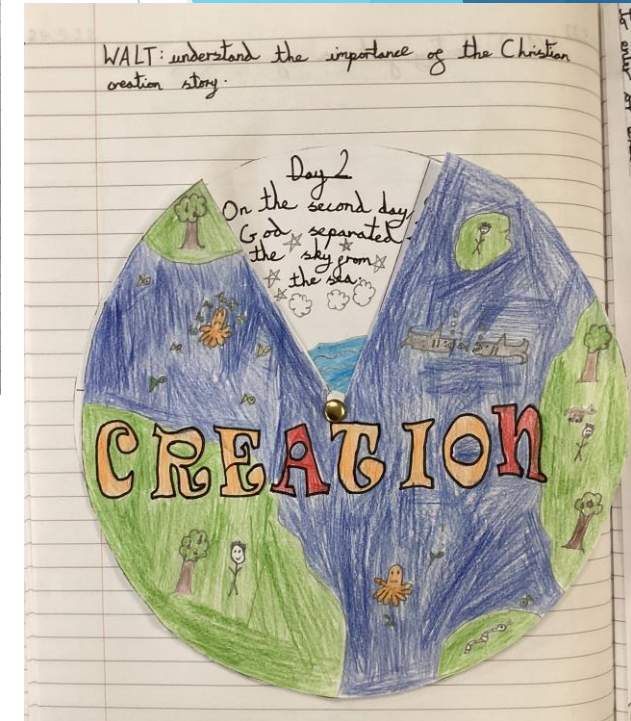 WALT: understand the importance of the Christian
creation story.
Day 2
On the second day
God separated
the sky from
the sea.
CREATION